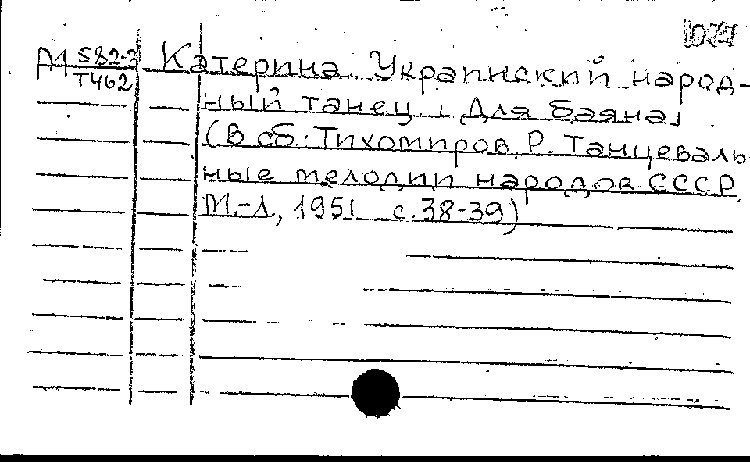 М 582-3 Катерина. Украинский народ-
Т462
ный танец [Для баяна]
(В сб: Тихомиров, Р. Танцеваль-
ные мелодии народов СССР.
М.-Л, 1951 с.38-39)